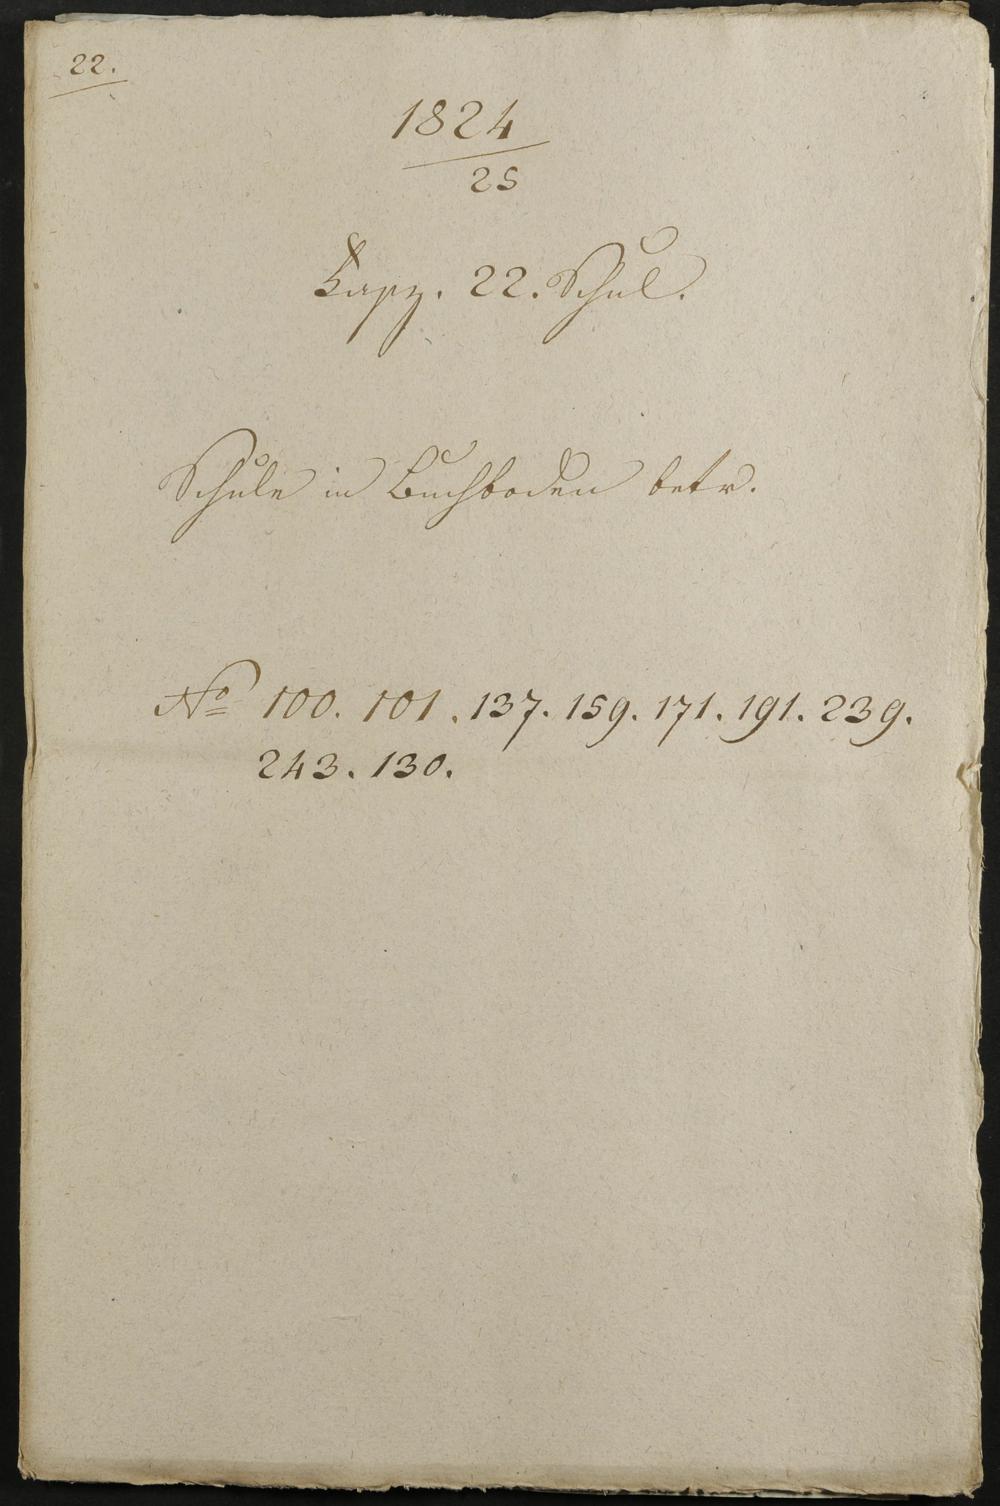 22.
1824
25
Fasz. 22. Schul.
Schule in Buchboden betr.
No 100. 101. 137. 159. 171. 191. 239.
243. 130.